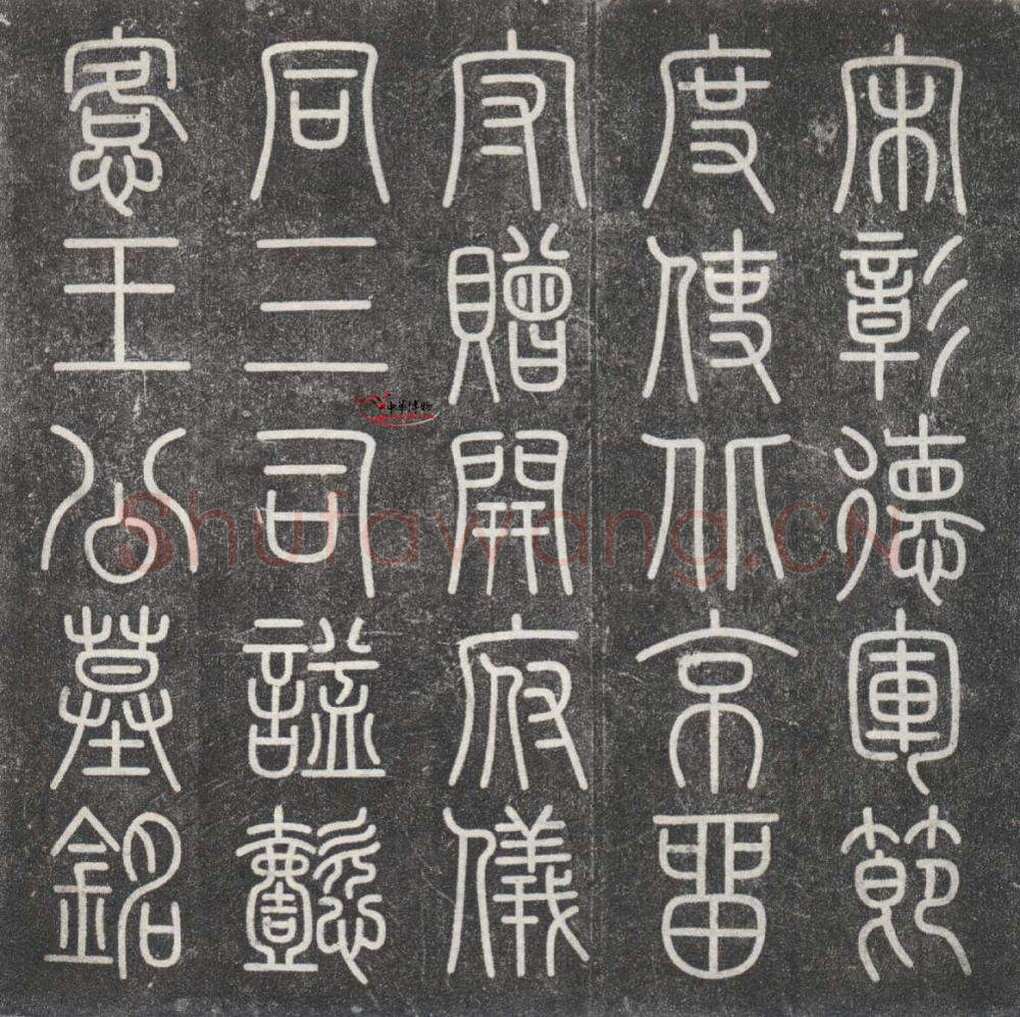 宋彰德軍節
度使北京留
守贈開府儀
同三司謚懿
愙王公墓銘
Shufawang.CN